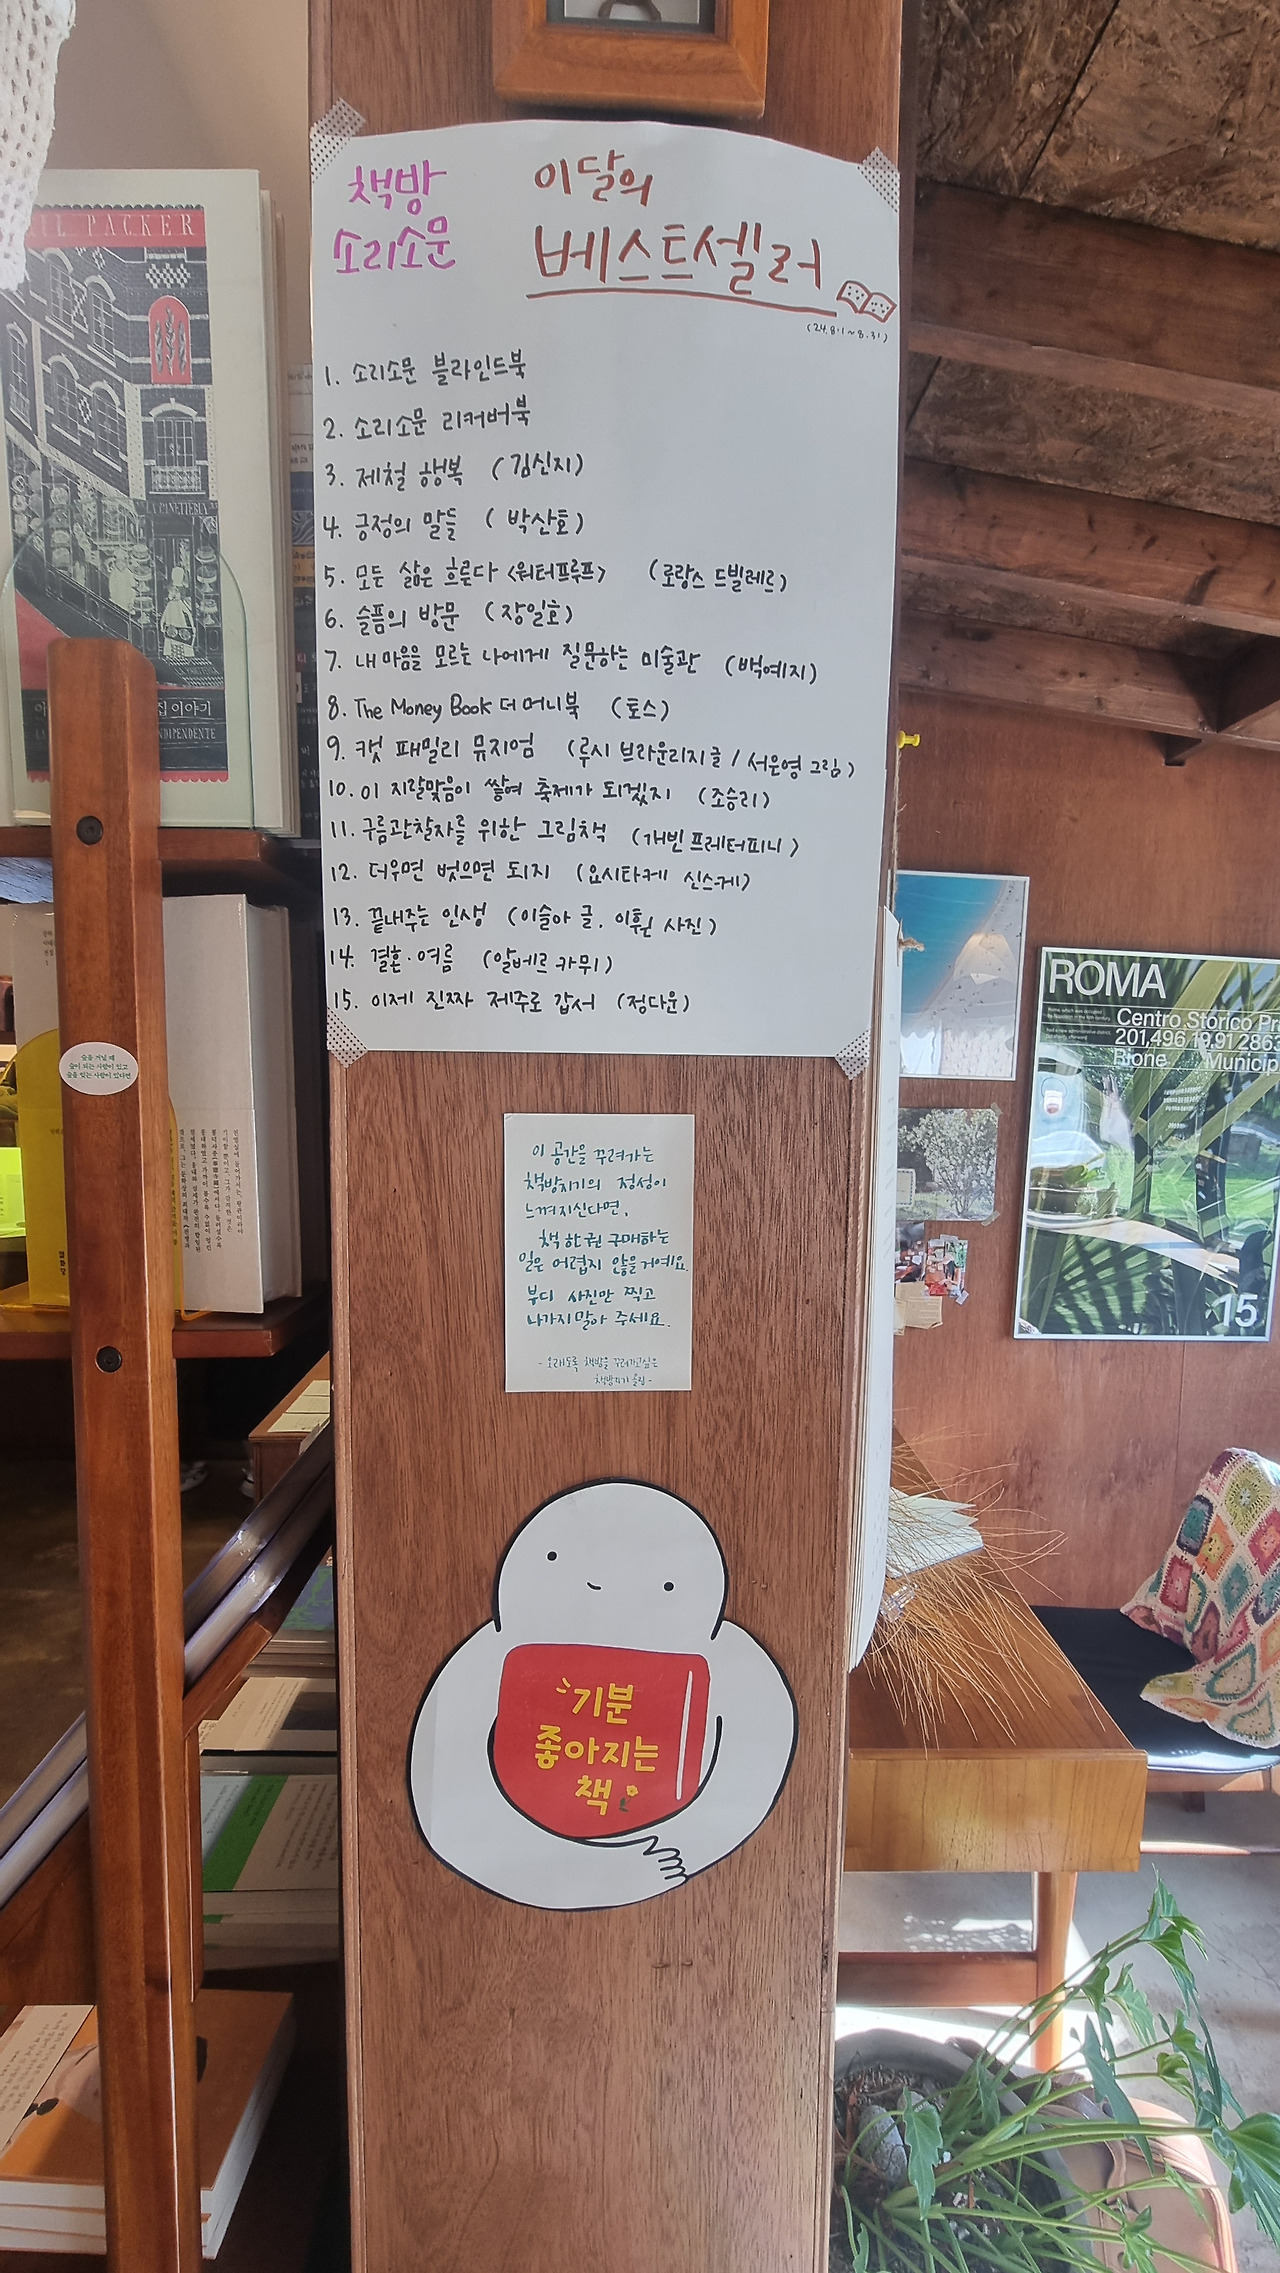 책방
소리소문
이달의
베스트셀러
(24.8.1~8.31)
1. 소리소문 블라인드북
2. 소리소문 리커버북
3. 제철 행복 (김신지)
4. 긍정의 말들 (박산호)
5. 모든 삶은 흐른다 <워터프루프> (로랑스 드빌레르)
6. 슬픔의 방문 (장일호)
7. 내 마음을 모르는 나에게 질문하는 미술관 (백예지)
8. The Money Book 더 머니북 (토스)
9. 캣 패밀리 뮤지엄 (루시 브라운리지 글 / 서은영 그림)
10. 이 지랄맞음이 쌓여 축제가 되겠지 (조승리)
11. 구름관찰자를 위한 그림책 (개빈 프레터피니)
12. 더우면 벗으면 되지 (요시타케 신스케)
13. 끝내주는 인생 (이슬아 글, 이훤 사진)
14. 결혼·여름 (알베르 카뮈)
15. 이제 진짜 제주로 갑서 (정다운)
이 공간을 꾸려가는
책방지기의 정성이
느껴지신다면,
책 한권 구매하는
일은 어렵지 않을거예요.
부디 사진만 찍고
나가지말아 주세요.
- 오래도록 책방을 꾸려가고싶은
책방지기 올림 -
기분
좋아지는
책
PACKER
LA PANETTERIA
집 이야기
INDIPENDENTE
숲을 거닐 때
숲이 되는 사람이 있고
숲을 잊는 사람이 있다면
ROMA
Centro Storico Pr
201,496 19.91 2863
Rione Municip
15